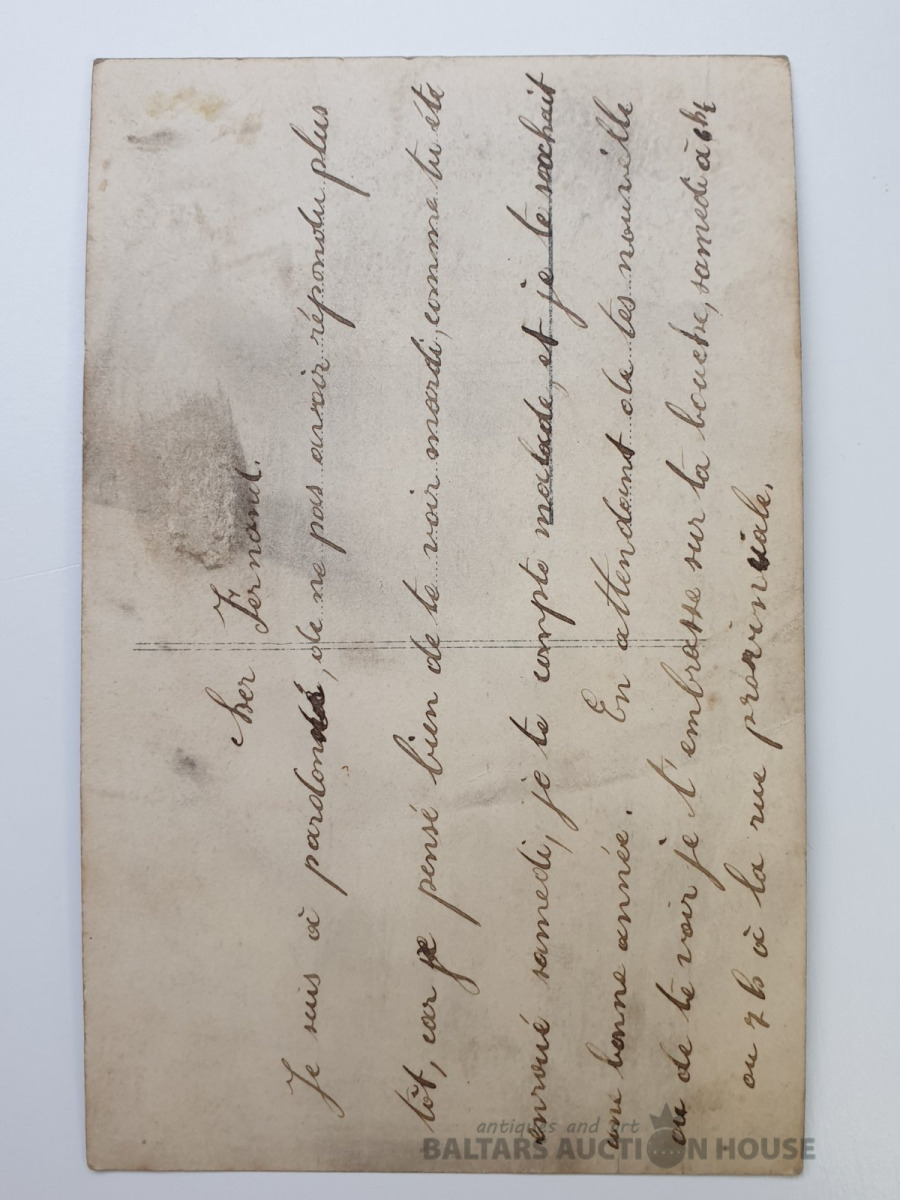 cher Fernand.
Je suis à pardonné, de ne pas avoir répondu plus
tôt, car je pensé bien de te voir mardi, comme tu éte
enroué samedi, je te compte malade, et je te sochait
une bonne année. En attendant de tes nouvelle
ou de te voir je t'embrasse sur ta bouche, samedi à 6h½
ou 7h à la rue provinsiale.
antiques and art
BALTARS AUCTION HOUSE